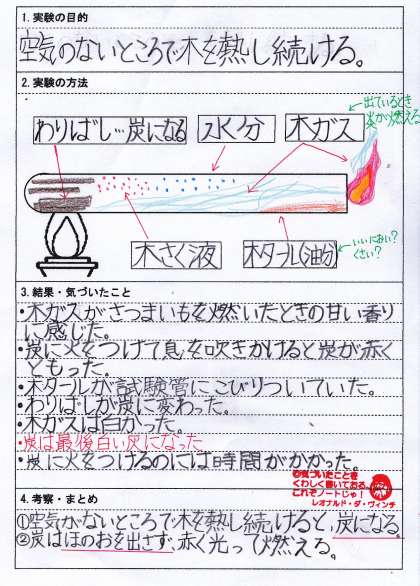 1. 実験の目的
空気のないところで木を熱し続ける。
2. 実験の方法
出ているとき
炎が燃える
わりばし…炭になる
水分
木ガス
木さく液
木タール(油分)
いいにおい?
くさい?
3. 結果・気づいたこと
・木ガスがさつまいもを燃いたときの甘い香り
に感じた。
・炭に火をつけて息を吹きかけると炭が赤く
ともった。
・木タールが試験管にこびりついていた。
・わりばしが炭に変わった。
・木ガスは白かった。
・炭は最後白い灰になった
・炭に火をつけるのには時間がかかった。
気づいたことを
くわしく書いておる。
これぞノートじゃ!
レオナルド・ダ・ヴィンチ
4. 考察・まとめ
①空気がないところで木を熱し続けると、炭になる。
②炭はほのおを出さず、赤く光って燃える。